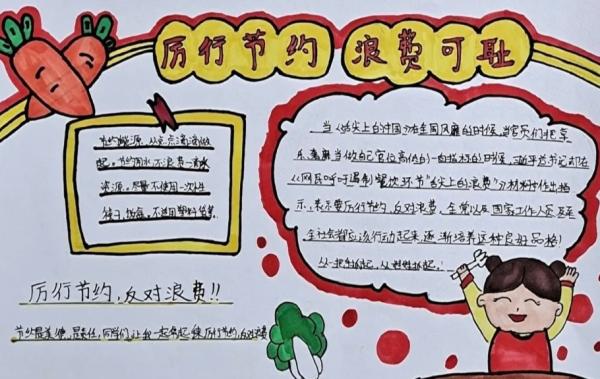 厉行节约 浪费可耻
节约能源,从点点滴滴做
起。节约用水,不浪费一滴水
资源。尽量不使用一次性
筷子,纸盒。不适用塑料
当《舌尖上的中国》在全国风靡的时候,当官员们把享
乐、奢靡当做自己官位高低的一的时候,习近平总书记却在
《网民呼吁遏制餐饮环节"舌尖上的浪费"》材料中作出指
示,表示要厉行节约,反对浪费,全党以及国家工作人员及至
全社会都应该行动起来,逐渐培养这种良好品格!
从一起,从起!
厉行节约,反对浪费!!
节约是美德,是责任,同学们,让我一起起来厉行节约,反对浪费